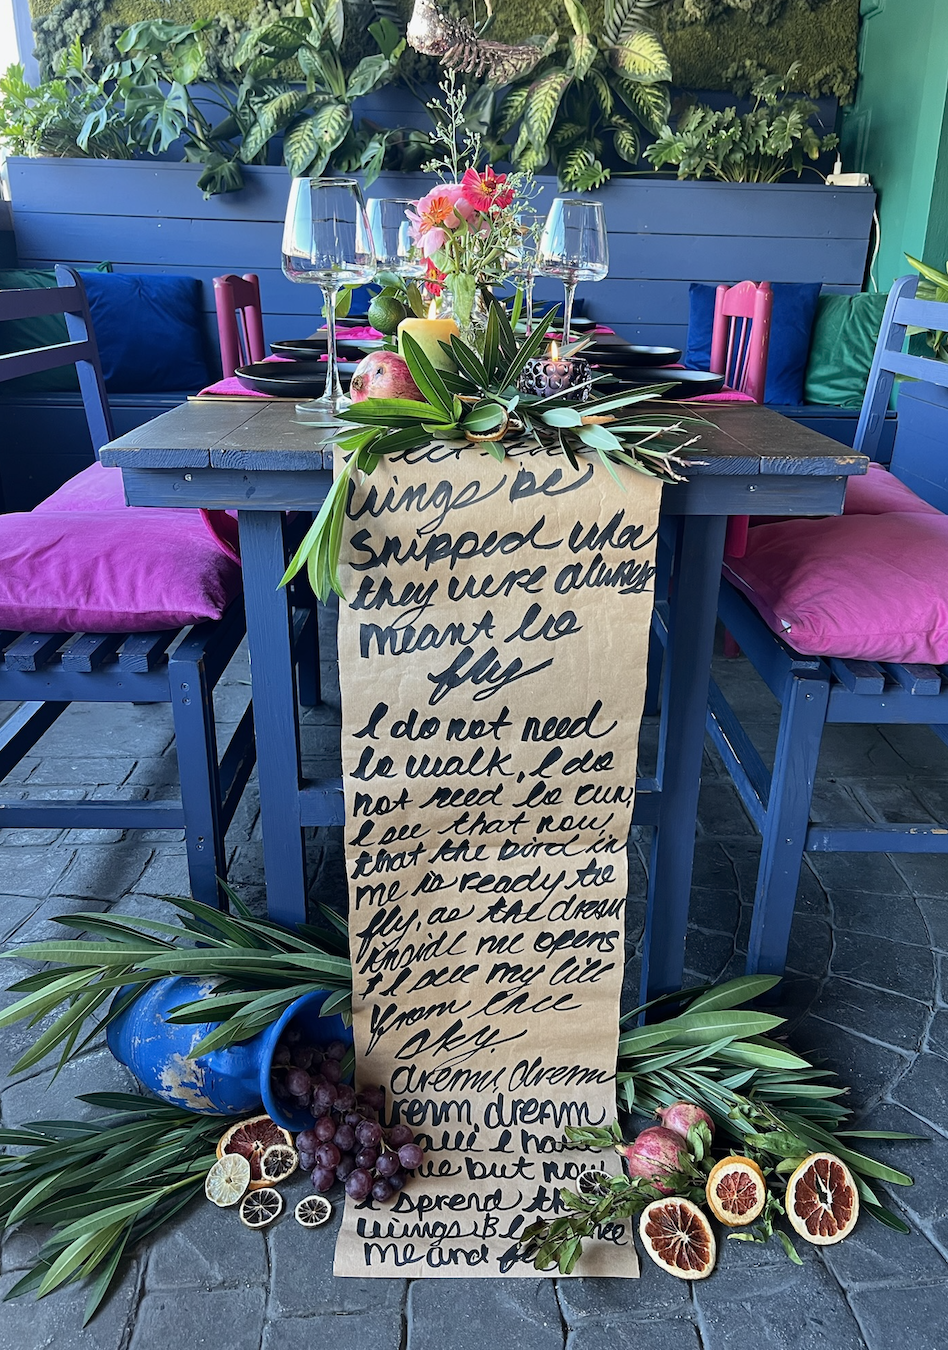 wings be
snipped when
they were always
meant to
fly
I do not need
to walk, I do
not need to run,
I see that now,
that the bird in
me is ready to
fly, as the dream
inside me opens
I see my life
from the
sky.
dream, dream
dream, dream
all I have
but now
I spread the
wings B me
me and